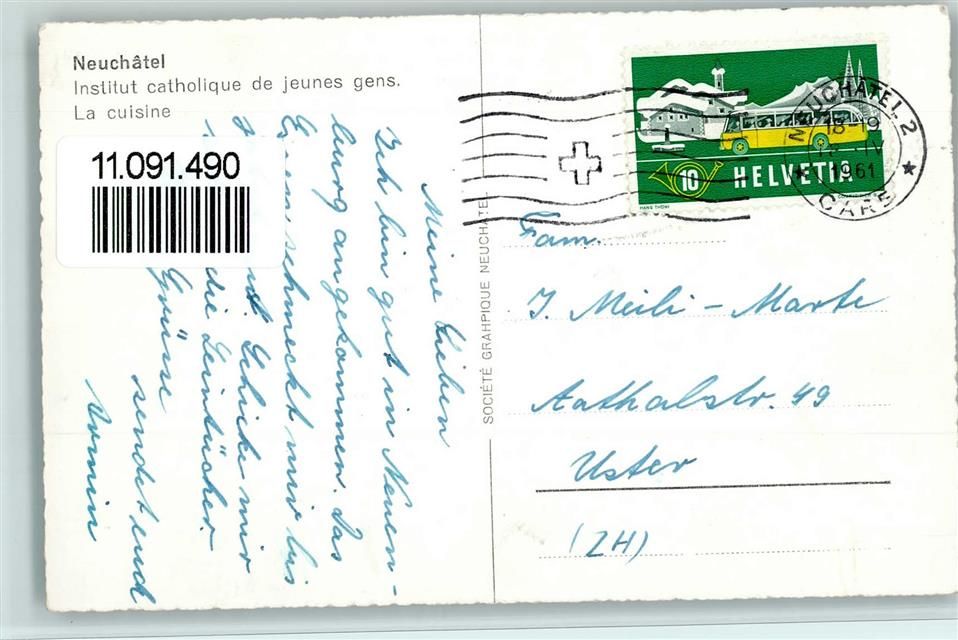 Neuchâtel
Institut catholique de jeunes gens.
La cuisine
11.091.490
Meine Lieben
Ich bin gut in Neuen-
burg angekommen. Das
Essen schmeckt mir bis
Schicke mir
die Leintücher.
Grüsse
sendet euch
Armin
SOCIÉTÉ GRAHPIQUE NEUCHATEL
HELVETIA
10
HANS THÖNI
NEUCHÂTEL 2
18-19
IV
1961
GARE
Fam.
J. Meili-Marte
Aathalstr. 49
Uster
(ZH)